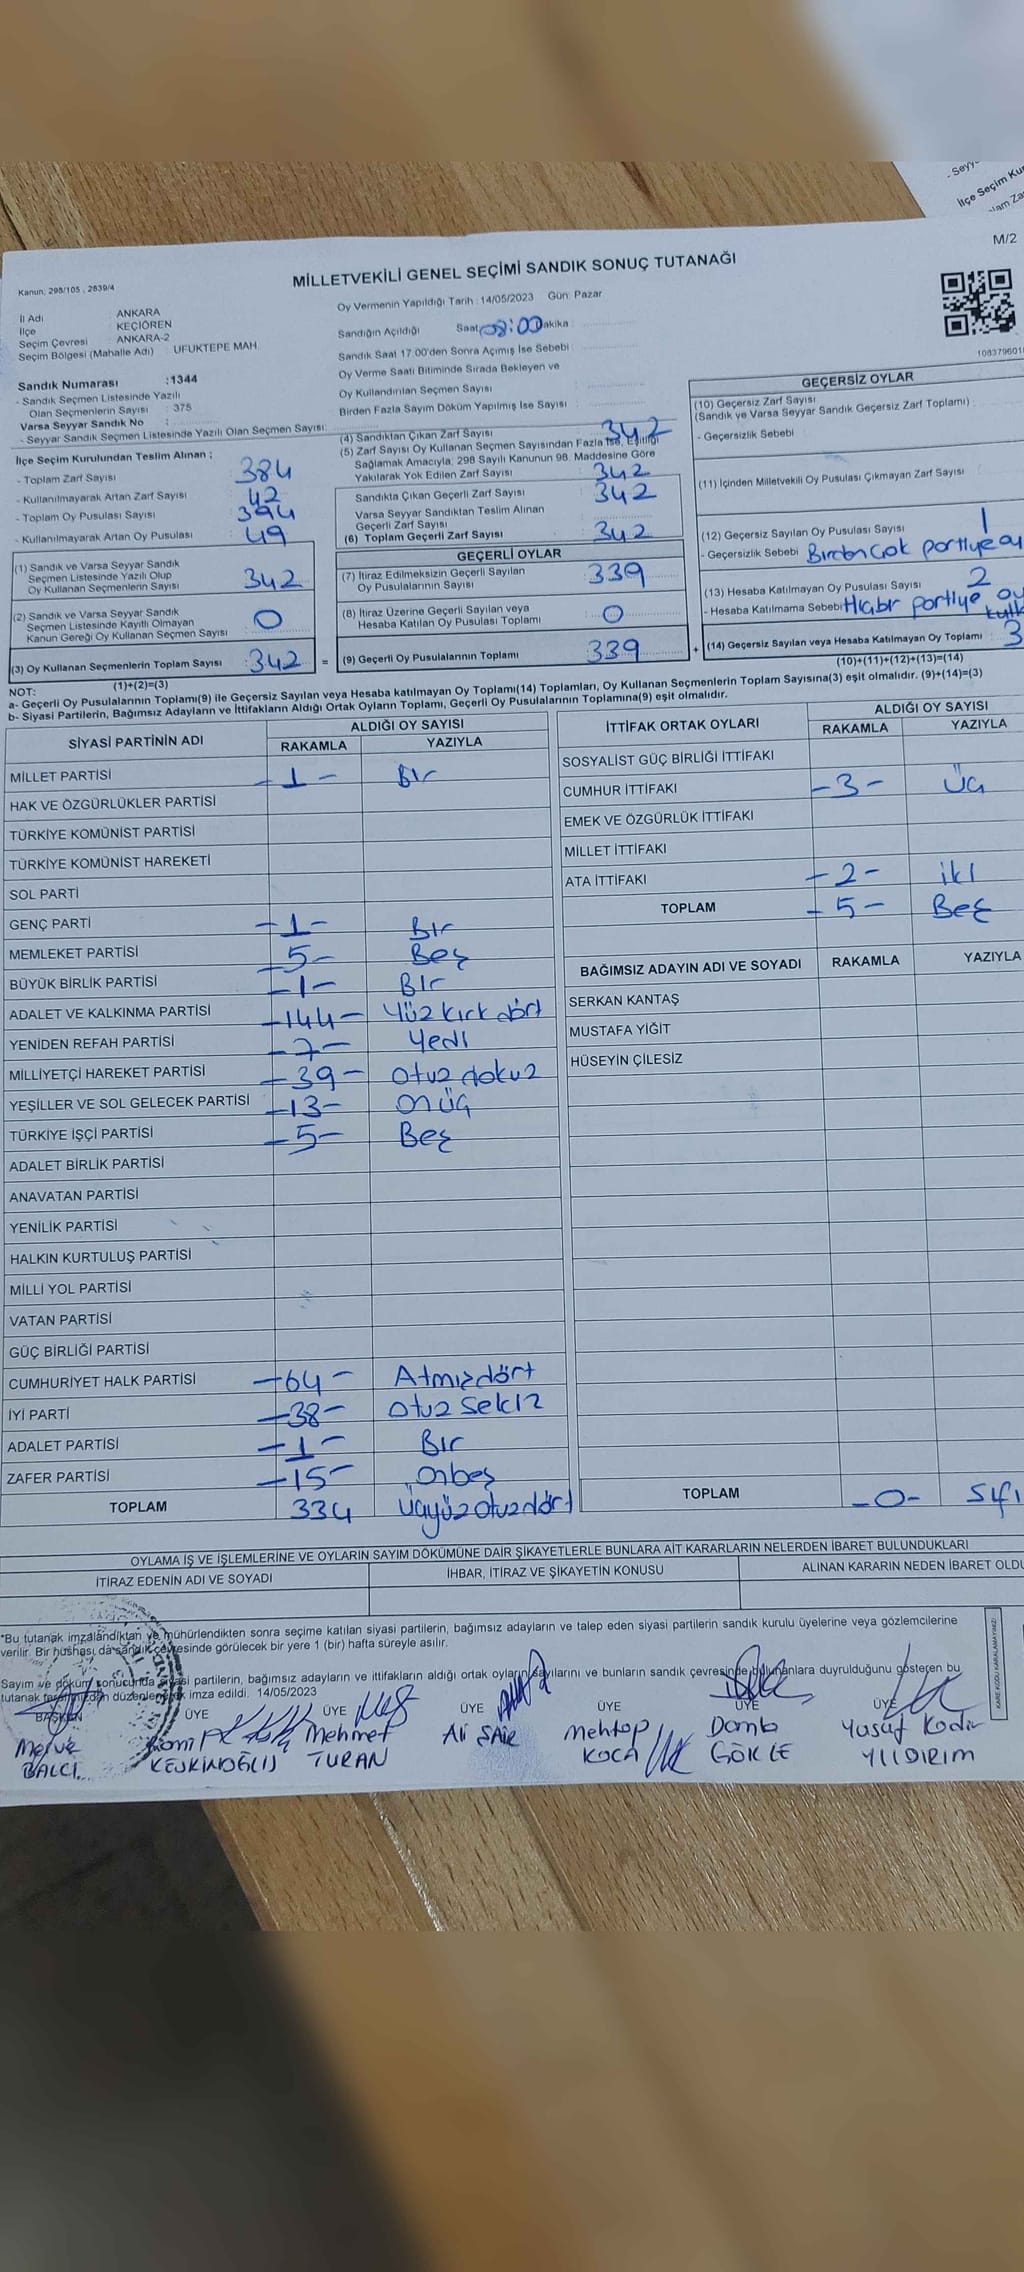 - Seyy
İlçe Seçim Ku
M/2
MİLLETVEKİLİ GENEL SEÇİMİ SANDIK SONUÇ TUTANAĞI
Kanun: 298/105 , 2839/4
İl Adı ANKARA
İlçe KEÇİÖREN
Seçim Çevresi ANKARA-2
Seçim Bölgesi (Mahalle Adı) : UFUKTEPE MAH.
Oy Vermenin Yapıldığı Tarih : 14/05/2023 Gün: Pazar
Sandığın Açıldığı Saat 08:00 Dakika :
Sandık Saat 17:00'den Sonra Açımış İse Sebebi :
Oy Verme Saati Bitiminde Sırada Bekleyen ve
Oy Kullandırılan Seçmen Sayısı
Birden Fazla Sayım Döküm Yapılmış İse Sayısı :
Sandık Numarası :1344
- Sandık Seçmen Listesinde Yazılı
Olan Seçmenlerin Sayısı : 375
Varsa Seyyar Sandık No :
- Seyyar Sandık Seçmen Listesinde Yazılı Olan Seçmen Sayısı:
İlçe Seçim Kurulundan Teslim Alınan ;
- Toplam Zarf Sayısı 384
- Kullanılmayarak Artan Zarf Sayısı 42
- Toplam Oy Pusulası Sayısı 394
- Kullanılmayarak Artan Oy Pusulası 49
(1) Sandık ve Varsa Seyyar Sandık
Seçmen Listesinde Yazılı Olup
Oy Kullanan Seçmenlerin Sayısı 342
(2) Sandık ve Varsa Seyyar Sandık
Seçmen Listesinde Kayıtlı Olmayan
Kanun Gereği Oy Kullanan Seçmen Sayısı 0
(3) Oy Kullanan Seçmenlerin Toplam Sayısı : 342 =
(1)+(2)=(3)
(4) Sandıktan Çıkan Zarf Sayısı 342
(5) Zarf Sayısı Oy Kullanan Seçmen Sayısından Fazla İse, Eşitliği
Sağlamak Amacıyla; 298 Sayılı Kanunun 98. Maddesine Göre
Yakılarak Yok Edilen Zarf Sayısı 342
Sandıkta Çıkan Geçerli Zarf Sayısı 342
Varsa Seyyar Sandıktan Teslim Alınan
Geçerli Zarf Sayısı
(6) Toplam Geçerli Zarf Sayısı 342
GEÇERLİ OYLAR
(7) İtiraz Edilmeksizin Geçerli Sayılan
Oy Pusulalarının Sayısı : 339
(8) İtiraz Üzerine Geçerli Sayılan veya
Hesaba Katılan Oy Pusulası Toplamı : 0
(9) Geçerli Oy Pusulalarının Toplamı 339 +
GEÇERSİZ OYLAR
(10) Geçersiz Zarf Sayısı
(Sandık ve Varsa Seyyar Sandık Geçersiz Zarf Toplamı)
- Geçersizlik Sebebi
(11) İçinden Milletvekili Oy Pusulası Çıkmayan Zarf Sayısı
(12) Geçersiz Sayılan Oy Pusulası Sayısı 1
- Geçersizlik Sebebi Birden Çok partiye oy
(13) Hesaba Katılmayan Oy Pusulası Sayısı 2
- Hesaba Katılmama Sebebi Hiçbir partiye oy
(14) Geçersiz Sayılan veya Hesaba Katılmayan Oy Toplamı 3
(10)+(11)+(12)+(13)=(14)
NOT:
a- Geçerli Oy Pusulalarının Toplamı(9) ile Geçersiz Sayılan veya Hesaba katılmayan Oy Toplamı(14) Toplamları, Oy Kullanan Seçmenlerin Toplam Sayısına(3) eşit olmalıdır. (9)+(14)=(3)
b- Siyasi Partilerin, Bağımsız Adayların ve İttifakların Aldığı Ortak Oyların Toplamı, Geçerli Oy Pusulasının Toplamına(9) eşit olmalıdır.
SİYASİ PARTİNİN ADI ALDIĞI OY SAYISI
RAKAMLA YAZIYLA
MİLLET PARTİSİ - 1 - Bir
HAK VE ÖZGÜRLÜKLER PARTİSİ
TÜRKİYE KOMÜNİST PARTİSİ
TÜRKİYE KOMÜNİST HAREKETİ
SOL PARTİ
GENÇ PARTİ -1- Bir
MEMLEKET PARTİSİ -5- Beş
BÜYÜK BİRLİK PARTİSİ -1- Bir
ADALET VE KALKINMA PARTİSİ -144- Yüz kırk dört
YENİDEN REFAH PARTİSİ -7- Yedi
MİLLİYETÇİ HAREKET PARTİSİ -39- Otuz dokuz
YEŞİLLER VE SOL GELECEK PARTİSİ -13- Onüç
TÜRKİYE İŞÇİ PARTİSİ -5- Beş
ADALET BİRLİK PARTİSİ
ANAVATAN PARTİSİ
YENİLİK PARTİSİ
HALKIN KURTULUŞ PARTİSİ
MİLLİ YOL PARTİSİ
VATAN PARTİSİ
GÜÇ BİRLİĞİ PARTİSİ
CUMHURİYET HALK PARTİSİ -64- Atmışdört
İYİ PARTİ -38- Otuz sekiz
ADALET PARTİSİ -1- Bir
ZAFER PARTİSİ -15- Onbeş
TOPLAM 334 Üçyüzotuzdört
İTTİFAK ORTAK OYLARI ALDIĞI OY SAYISI
RAKAMLA YAZIYLA
SOSYALİST GÜÇ BİRLİĞİ İTTİFAKI
CUMHUR İTTİFAKI -3- Üç
EMEK VE ÖZGÜRLÜK İTTİFAKI
MİLLET İTTİFAKI
ATA İTTİFAKI -2- iki
TOPLAM -5- Beş
BAĞIMSIZ ADAYIN ADI VE SOYADI RAKAMLA YAZIYLA
SERKAN KANTAŞ
MUSTAFA YİĞİT
HÜSEYİN ÇİLESİZ
TOPLAM -0- Sıfı
OYLAMA İŞ VE İŞLEMLERİNE VE OYLARIN SAYIM DÖKÜMÜNE DAİR ŞİKAYETLERLE BUNLARA AİT KARARLARIN NELERDEN İBARET BULUNDUKLARI
İTİRAZ EDENİN ADI VE SOYADI İHBAR, İTİRAZ VE ŞİKAYETİN KONUSU ALINAN KARARIN NEDEN İBARET OLDU
*Bu tutanak imzalandıktan ve mühürlendikten sonra seçime katılan siyasi partilerin, bağımsız adayların ve talep eden siyasi partilerin sandık kurulu üyelerine veya gözlemcilerine
verilir. Bir nüshası da sandık çevresinde görülecek bir yere 1 (bir) hafta süreyle asılır.
Sayım ve döküm sonucunda siyasi partilerin, bağımsız adayların ve ittifakların aldığı ortak oyların sayılarını ve bunların sandık çevresinde bulunanlara duyrulduğunu gösteren bu
tutanak tarafımızdan düzenlenerek imza edildi. 14/05/2023
BAŞKAN ÜYE ÜYE ÜYE ÜYE ÜYE ÜYE
Merve Mehmet Ali SAİR Mehtap Yusuf Kadir
BALCI TURAN KOCA YILDIRIM
KARE KODU KARALAMAYINIZ!